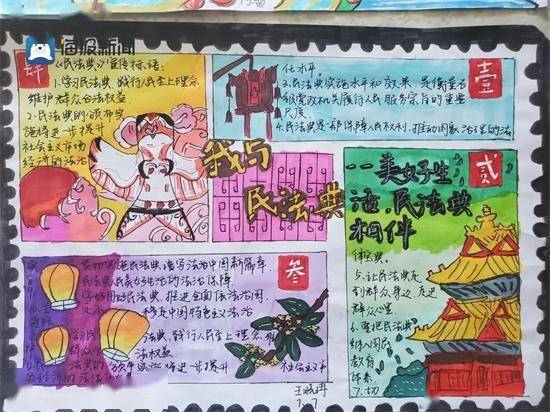 海报新闻
肆
《民法典》宣传标语:
1.学习民法典 践行人民至上理念
维护群众合法权益
2.民法典的颁布实
施将进一步提升
社会主义市场
经济的法治
化水平
3.民法典实施水平和效果,是衡量各
级党政机关履行人民服务宗旨的重要
尺度
4.民法典是一部保障人民权利,推动国家治理的法
壹
我与
民法典
美好生
活,民法典
相伴
贰
5.让民法典走
到群众身边,走进
群众心里
6.要把民法典
纳入国民
教育
体系
7.切
叁
实施民法典,谱写法治中国新篇章
民法典美好生活的法治保障
学好用好民法典,推进全面依法治国
中国特色主义法治
践行人民至上理念,维
法权益
进一步提升
社会主义市